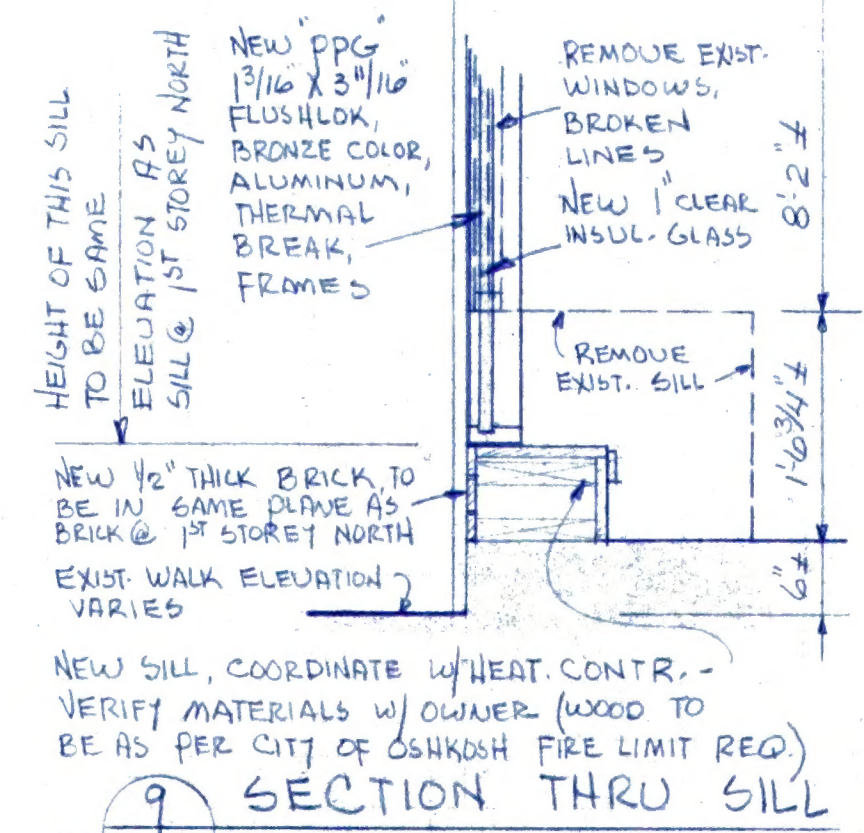 HEIGHT OF THIS SILL
TO BE SAME
ELEVATION AS
SILL @ 1ST STOREY NORTH
NEW "PPG"
1 3/16" X 3 11/16"
FLUSHLOK,
BRONZE COLOR,
ALUMINUM,
THERMAL
BREAK,
FRAMES
REMOVE EXIST.
WINDOWS,
BROKEN
LINES
NEW 1" CLEAR
INSUL. GLASS
8'-2" ±
REMOVE
EXIST. SILL
1'-6 3/4" ±
NEW 1/2" THICK BRICK, TO
BE IN SAME PLANE AS
BRICK @ 1ST STOREY NORTH
6" ±
EXIST. WALK ELEVATION
VARIES
NEW SILL, COORDINATE W/ HEAT. CONTR. -
VERIFY MATERIALS W/ OWNER (WOOD TO
BE AS PER CITY OF OSHKOSH FIRE LIMIT REQ.)
9 SECTION THRU SILL